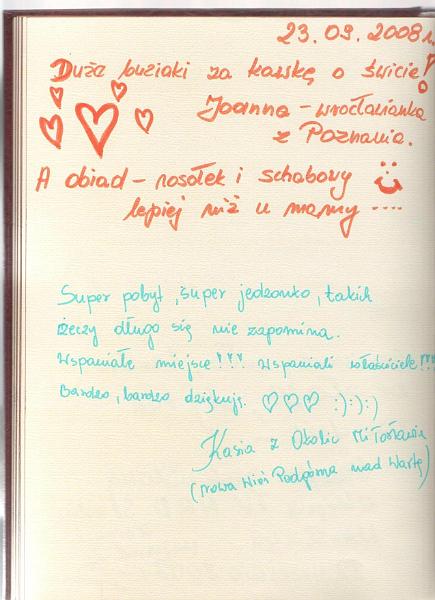 23.09.2008r.
Duże buziaki za kawkę o świcie!
Joanna - wrocławianka
z Poznania.
A obiad - rosołek i schabowy
lepiej niż u mamy ....
Super pobyt, super jedzonko, takich
rzeczy długo się nie zapomina.
Wspaniałe miejsce!!! Wspaniali właściciele!!!
Bardzo, bardzo dziękuję. ♡♡♡ :):):)
Kasia z Okolic Miłosławia
(Nowa Wieś Podgórna nad Wartą)